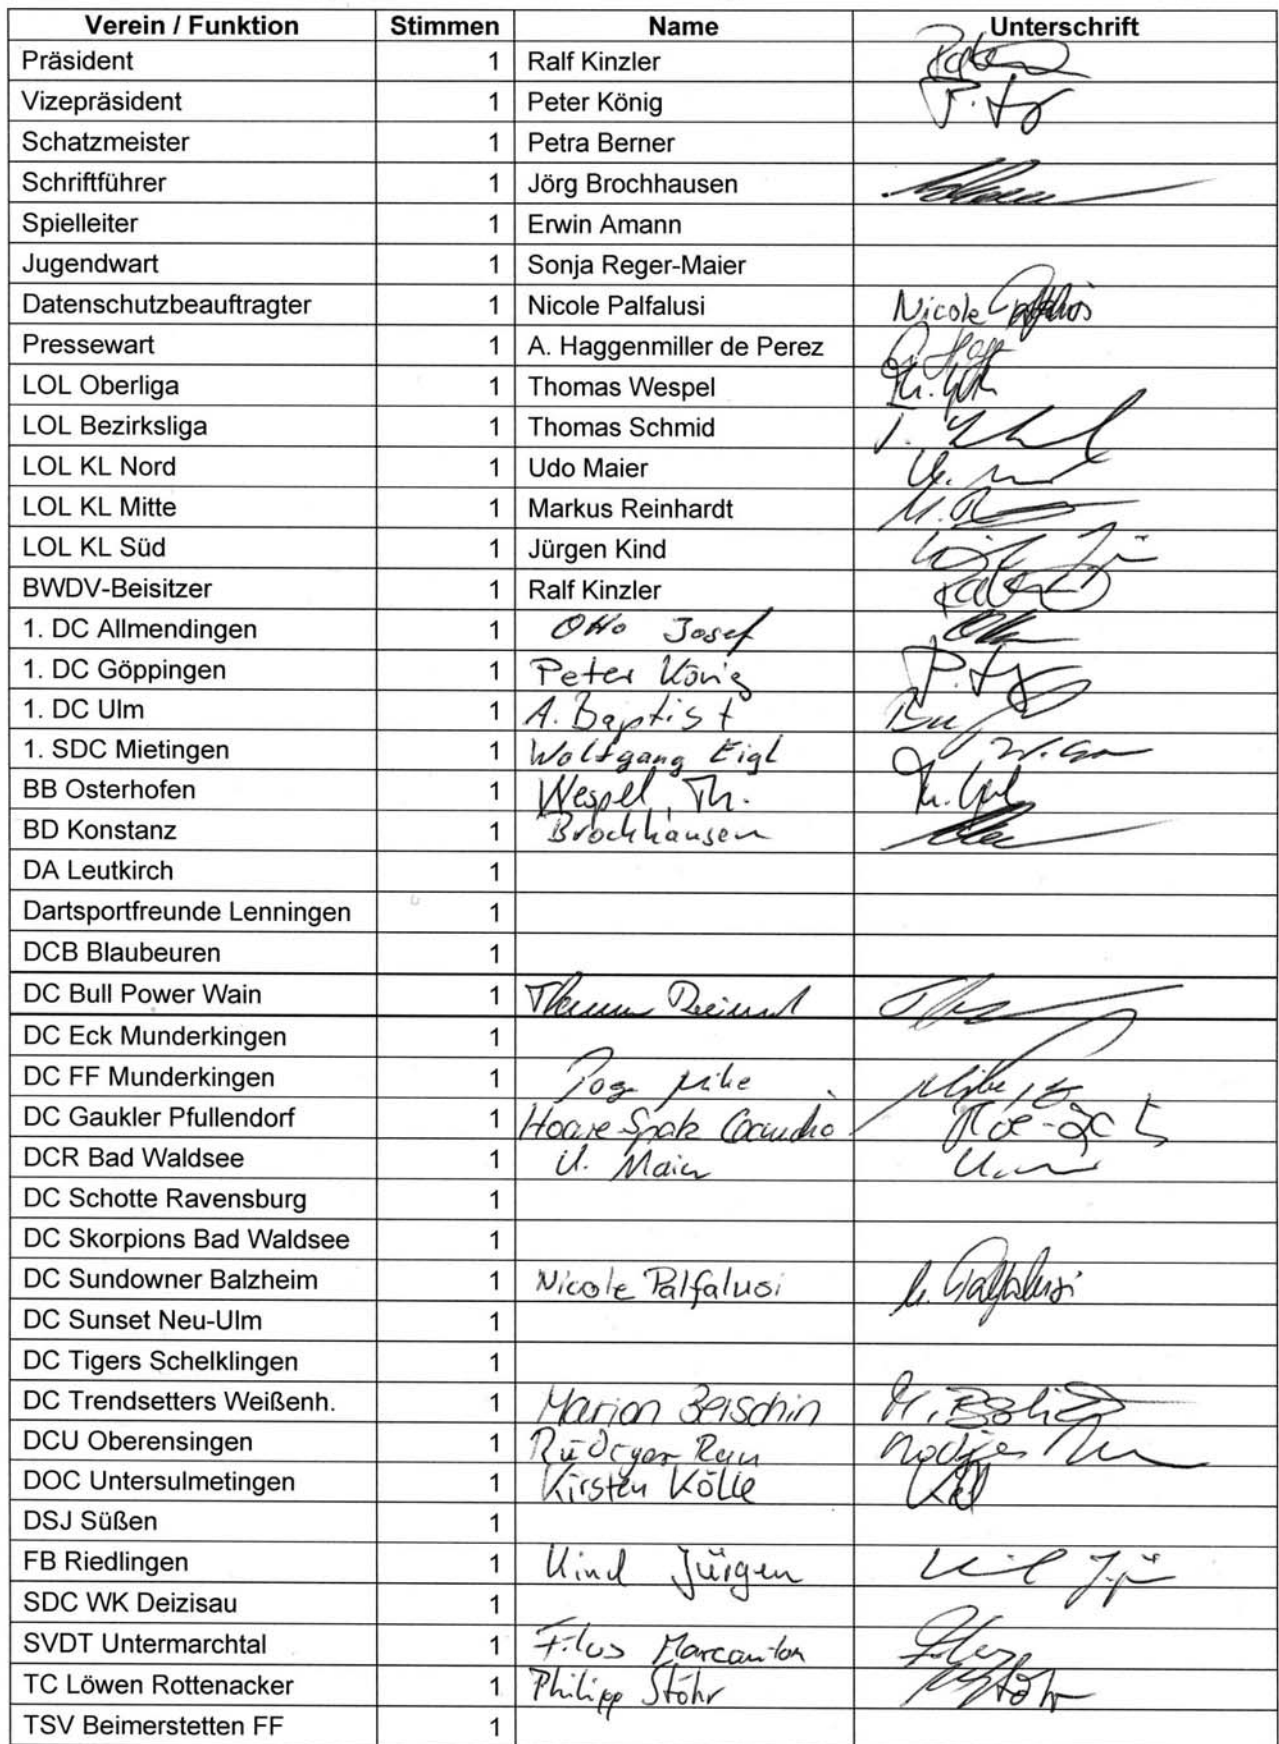 Verein / Funktion Stimmen Name Unterschrift
Präsident 1 Ralf Kinzler
Vizepräsident 1 Peter König
Schatzmeister 1 Petra Berner
Schriftführer 1 Jörg Brochhausen
Spielleiter 1 Erwin Amann
Jugendwart 1 Sonja Reger-Maier
Datenschutzbeauftragter 1 Nicole Palfalusi Nicole
Pressewart 1 A. Haggenmiller de Perez
LOL Oberliga 1 Thomas Wespel
LOL Bezirksliga 1 Thomas Schmid
LOL KL Nord 1 Udo Maier
LOL KL Mitte 1 Markus Reinhardt
LOL KL Süd 1 Jürgen Kind
BWDV-Beisitzer 1 Ralf Kinzler
1. DC Allmendingen 1 Otto Josef
1. DC Göppingen 1 Peter König
1. DC Ulm 1 A. Baptist
1. SDC Mietingen 1 Wolfgang Eigl
BB Osterhofen 1 Wespel, Th.
BD Konstanz 1 Brochhausen
DA Leutkirch 1
Dartsportfreunde Lenningen 1
DCB Blaubeuren 1
DC Bull Power Wain 1
DC Eck Munderkingen 1
DC FF Munderkingen 1 Mike
DC Gaukler Pfullendorf 1
DCR Bad Waldsee 1 U. Maier
DC Schotte Ravensburg 1
DC Skorpions Bad Waldsee 1
DC Sundowner Balzheim 1 Nicole Palfalusi N. Palfalusi
DC Sunset Neu-Ulm 1
DC Tigers Schelklingen 1
DC Trendsetters Weißenh. 1 Marion Beischin
DCU Oberensingen 1
DOC Untersulmetingen 1 Kirsten Kölle
DSJ Süßen 1
FB Riedlingen 1 Kind Jürgen
SDC WK Deizisau 1
SVDT Untermarchtal 1
TC Löwen Rottenacker 1 Philipp Stöhr
TSV Beimerstetten FF 1